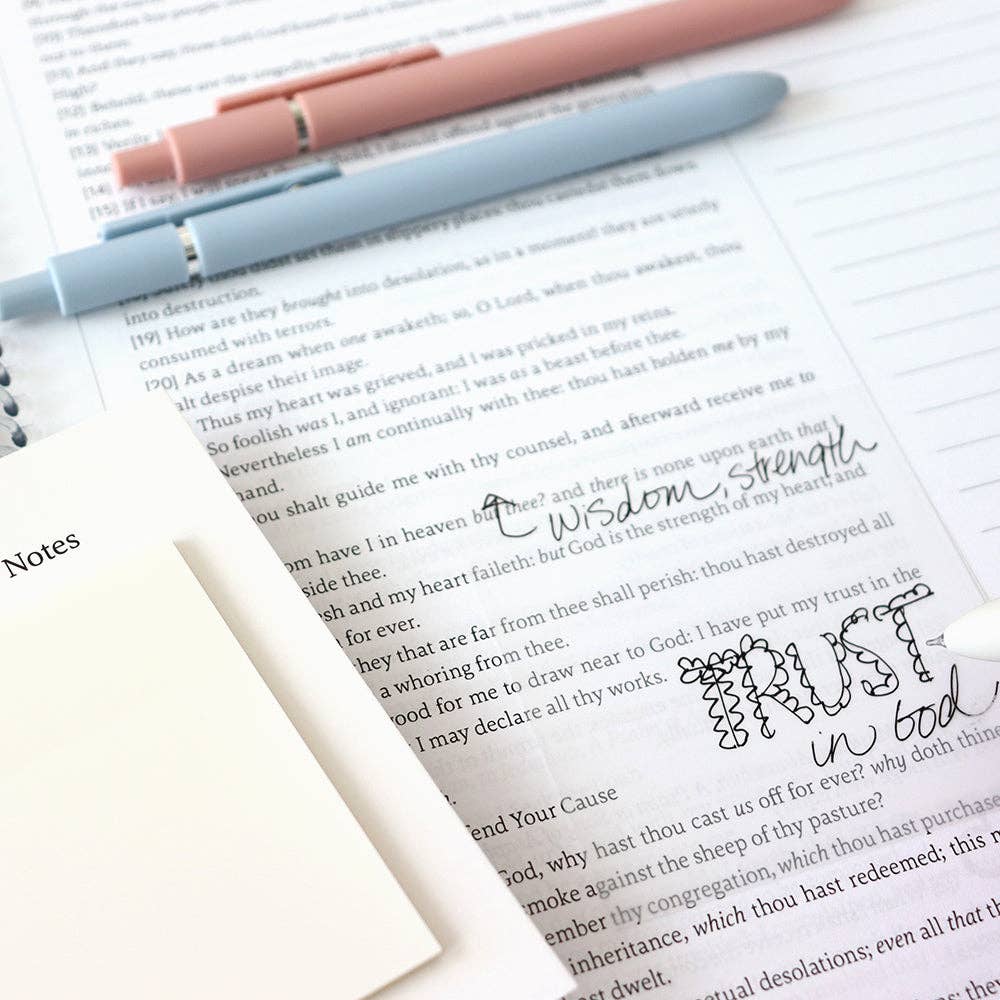 through the
[11] And they say, How doth God know? and is there
High?
[12] Behold, these are the ungodly, who prosper in the world; they
in riches.
[13] Verily
[14]
[15] If I say, I will speak thus; behold, I should offend against the generation
thou didst set them in slippery places: thou castedst them down
into destruction.
[19] How are they brought into desolation, as in a moment! they are utterly
consumed with terrors.
[20] As a dream when one awaketh; so, O Lord, when thou awakest, thou
alt despise their image.
Thus my heart was grieved, and I was pricked in my reins.
So foolish was I, and ignorant: I was as a beast before thee.
Nevertheless I am continually with thee: thou hast holden me by my
hand.
ou shalt guide me with thy counsel, and afterward receive me to
om have I in heaven but thee? and there is none upon earth that
↑ wisdom, strength
side thee.
sh and my heart faileth: but God is the strength of my heart, and
for ever.
hey that are far from thee shall perish: thou hast destroyed all
a whoring from thee.
ood for me to draw near to God: I have put my trust in the
I may declare all thy works.
TRUST
in God
end Your Cause
God, why hast thou cast us off for ever? why doth thine
moke against the sheep of thy pasture?
ember thy congregation, which thou hast purchase
inheritance, which thou hast redeemed; this m
st dwelt.
etual desolations; even all that th
Notes